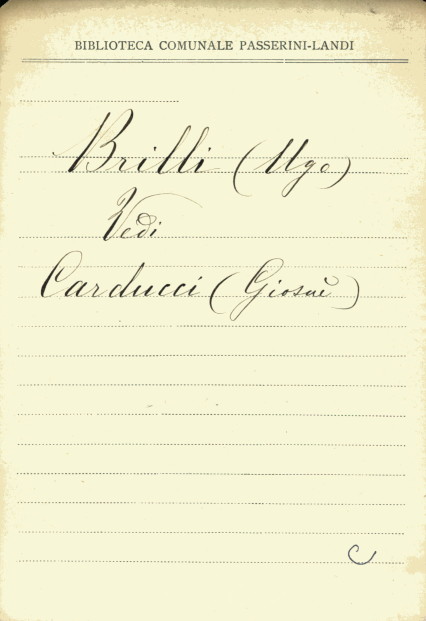 BIBLIOTECA COMUNALE PASSERINI-LANDI
Brilli (Ugo)
Vedi
Carducci (Giosuè)
C